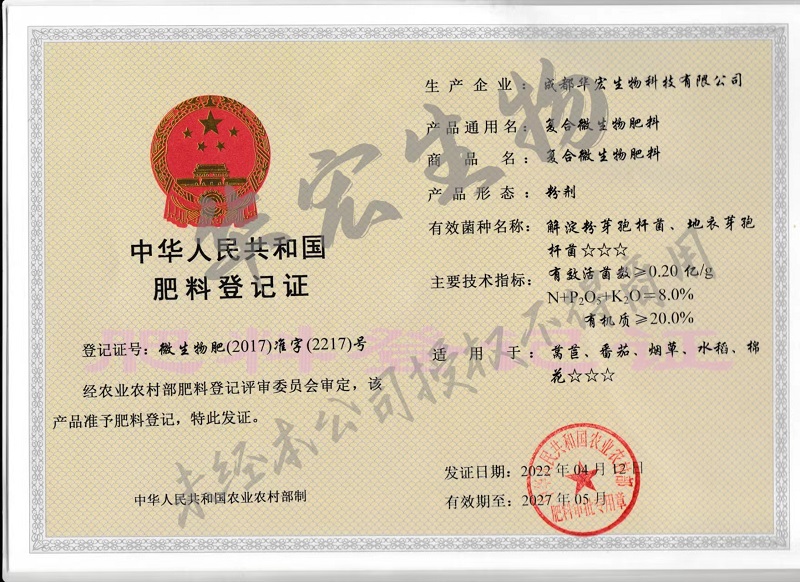 中华人民共和国
肥料登记证
登记证号：微生物肥(2017)准字(2217)号
经农业农村部肥料登记评审委员会审定，该
产品准予肥料登记，特此发证。
中华人民共和国农业农村部制
生产企业：成都华宏生物科技有限公司
产品通用名：复合微生物肥料
商品名：复合微生物肥料
产品形态：粉剂
有效菌种名称：解淀粉芽孢杆菌、地衣芽孢
杆菌☆☆☆
主要技术指标：有效活菌数≥0.20 亿/g
N+P₂O₅+K₂O=8.0%
有机质≥20.0%
适用于：莴苣、番茄、烟草、水稻、棉
花☆☆☆
发证日期：2022 年 04 月 12 日
有效期至：2027 年 05 月
中华人民共和国农业农村部
肥料审批专用章
肥料登记证
华宏生物
未经本公司授权不得商用